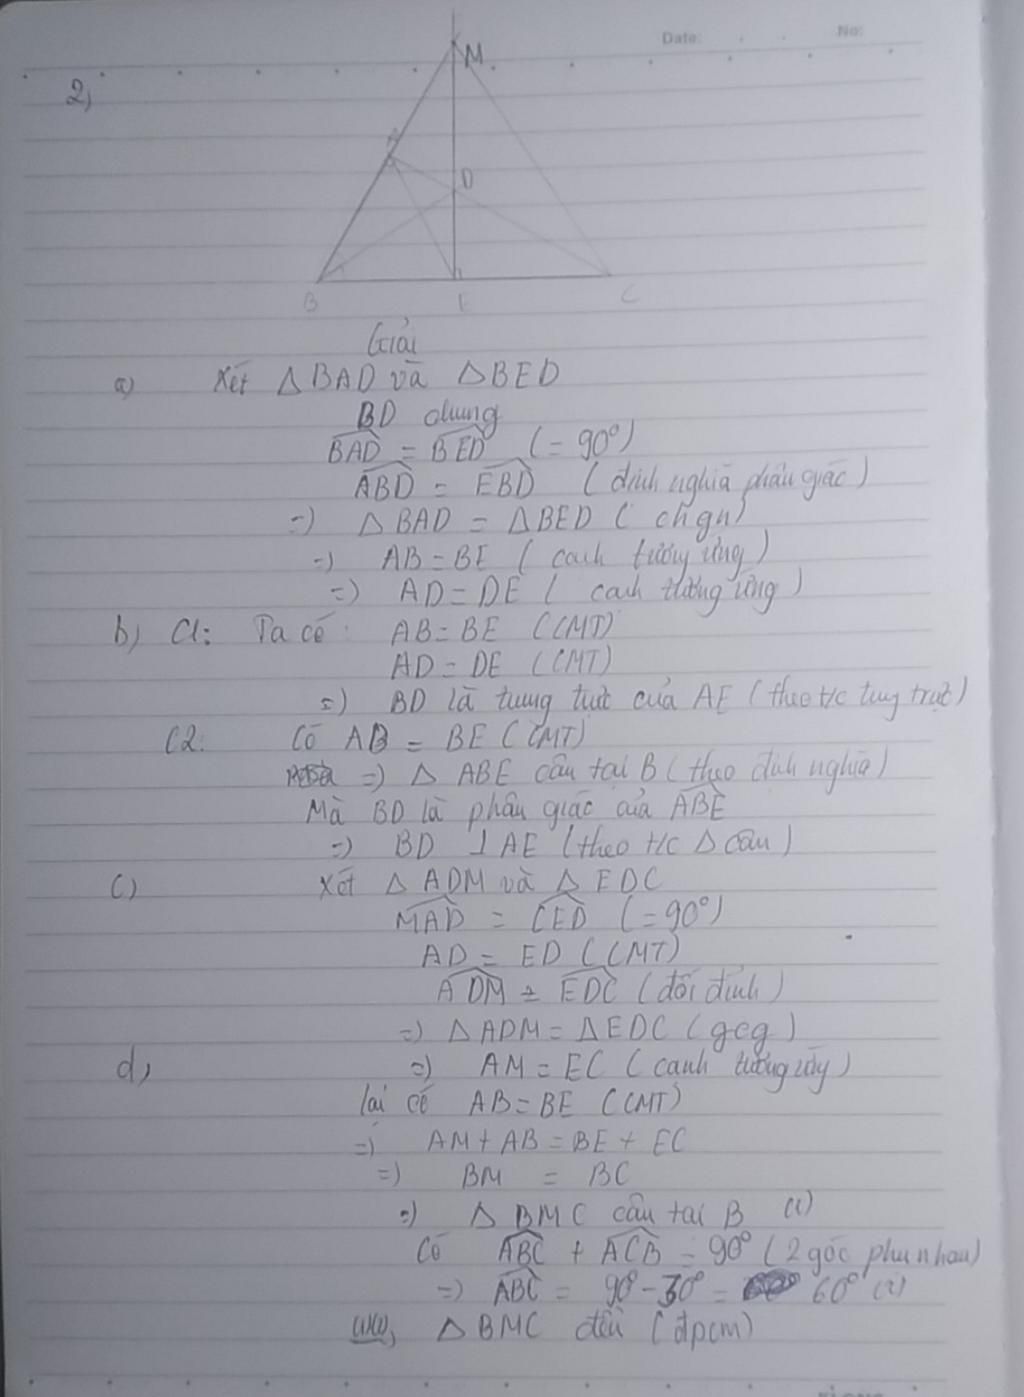 Date: No:
2,
M
A
D
B E C
Giải
a) Xét △BAD và △BED
BD chung
BAD = BED (= 90°)
ABD = EBD (định nghĩa phân giác)
=) △BAD = △BED ( chgn)
=) AB = BE ( cạnh tương ứng )
=) AD = DE ( cạnh tương ứng )
b) C1: Ta có : AB = BE (CMT)
AD = DE (CMT)
=) BD là trung trực của AE (theo t/c trung trực)
C2: Có AB = BE (CMT)
=) △ ABE cân tại B ( theo định nghĩa)
Mà BD là phân giác của ABE
=) BD ⊥ AE (theo t/c △ cân )
c) Xét △ ADM và △ EDC
MAD = CED (= 90°)
AD = ED (CMT)
ADM = EDC ( đối đỉnh )
=) △ ADM = △EDC ( gcg )
d, =) AM = EC ( cạnh tương ứng )
lại có AB = BE (CMT)
=) AM + AB = BE + EC
=) BM = BC
=) △ BMC cân tại B (1)
Có ABC + ACB = 90° ( 2 góc phụ nhau)
=) ABC = 90° - 30° = 60° (2)
△ BMC đều (đpcm)